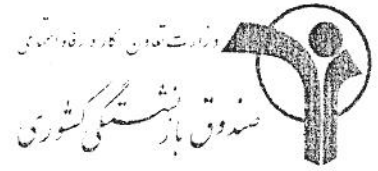 وزارت تعاون کار و رفاه اجتماعی
صندوق بازنشستگی کشوری